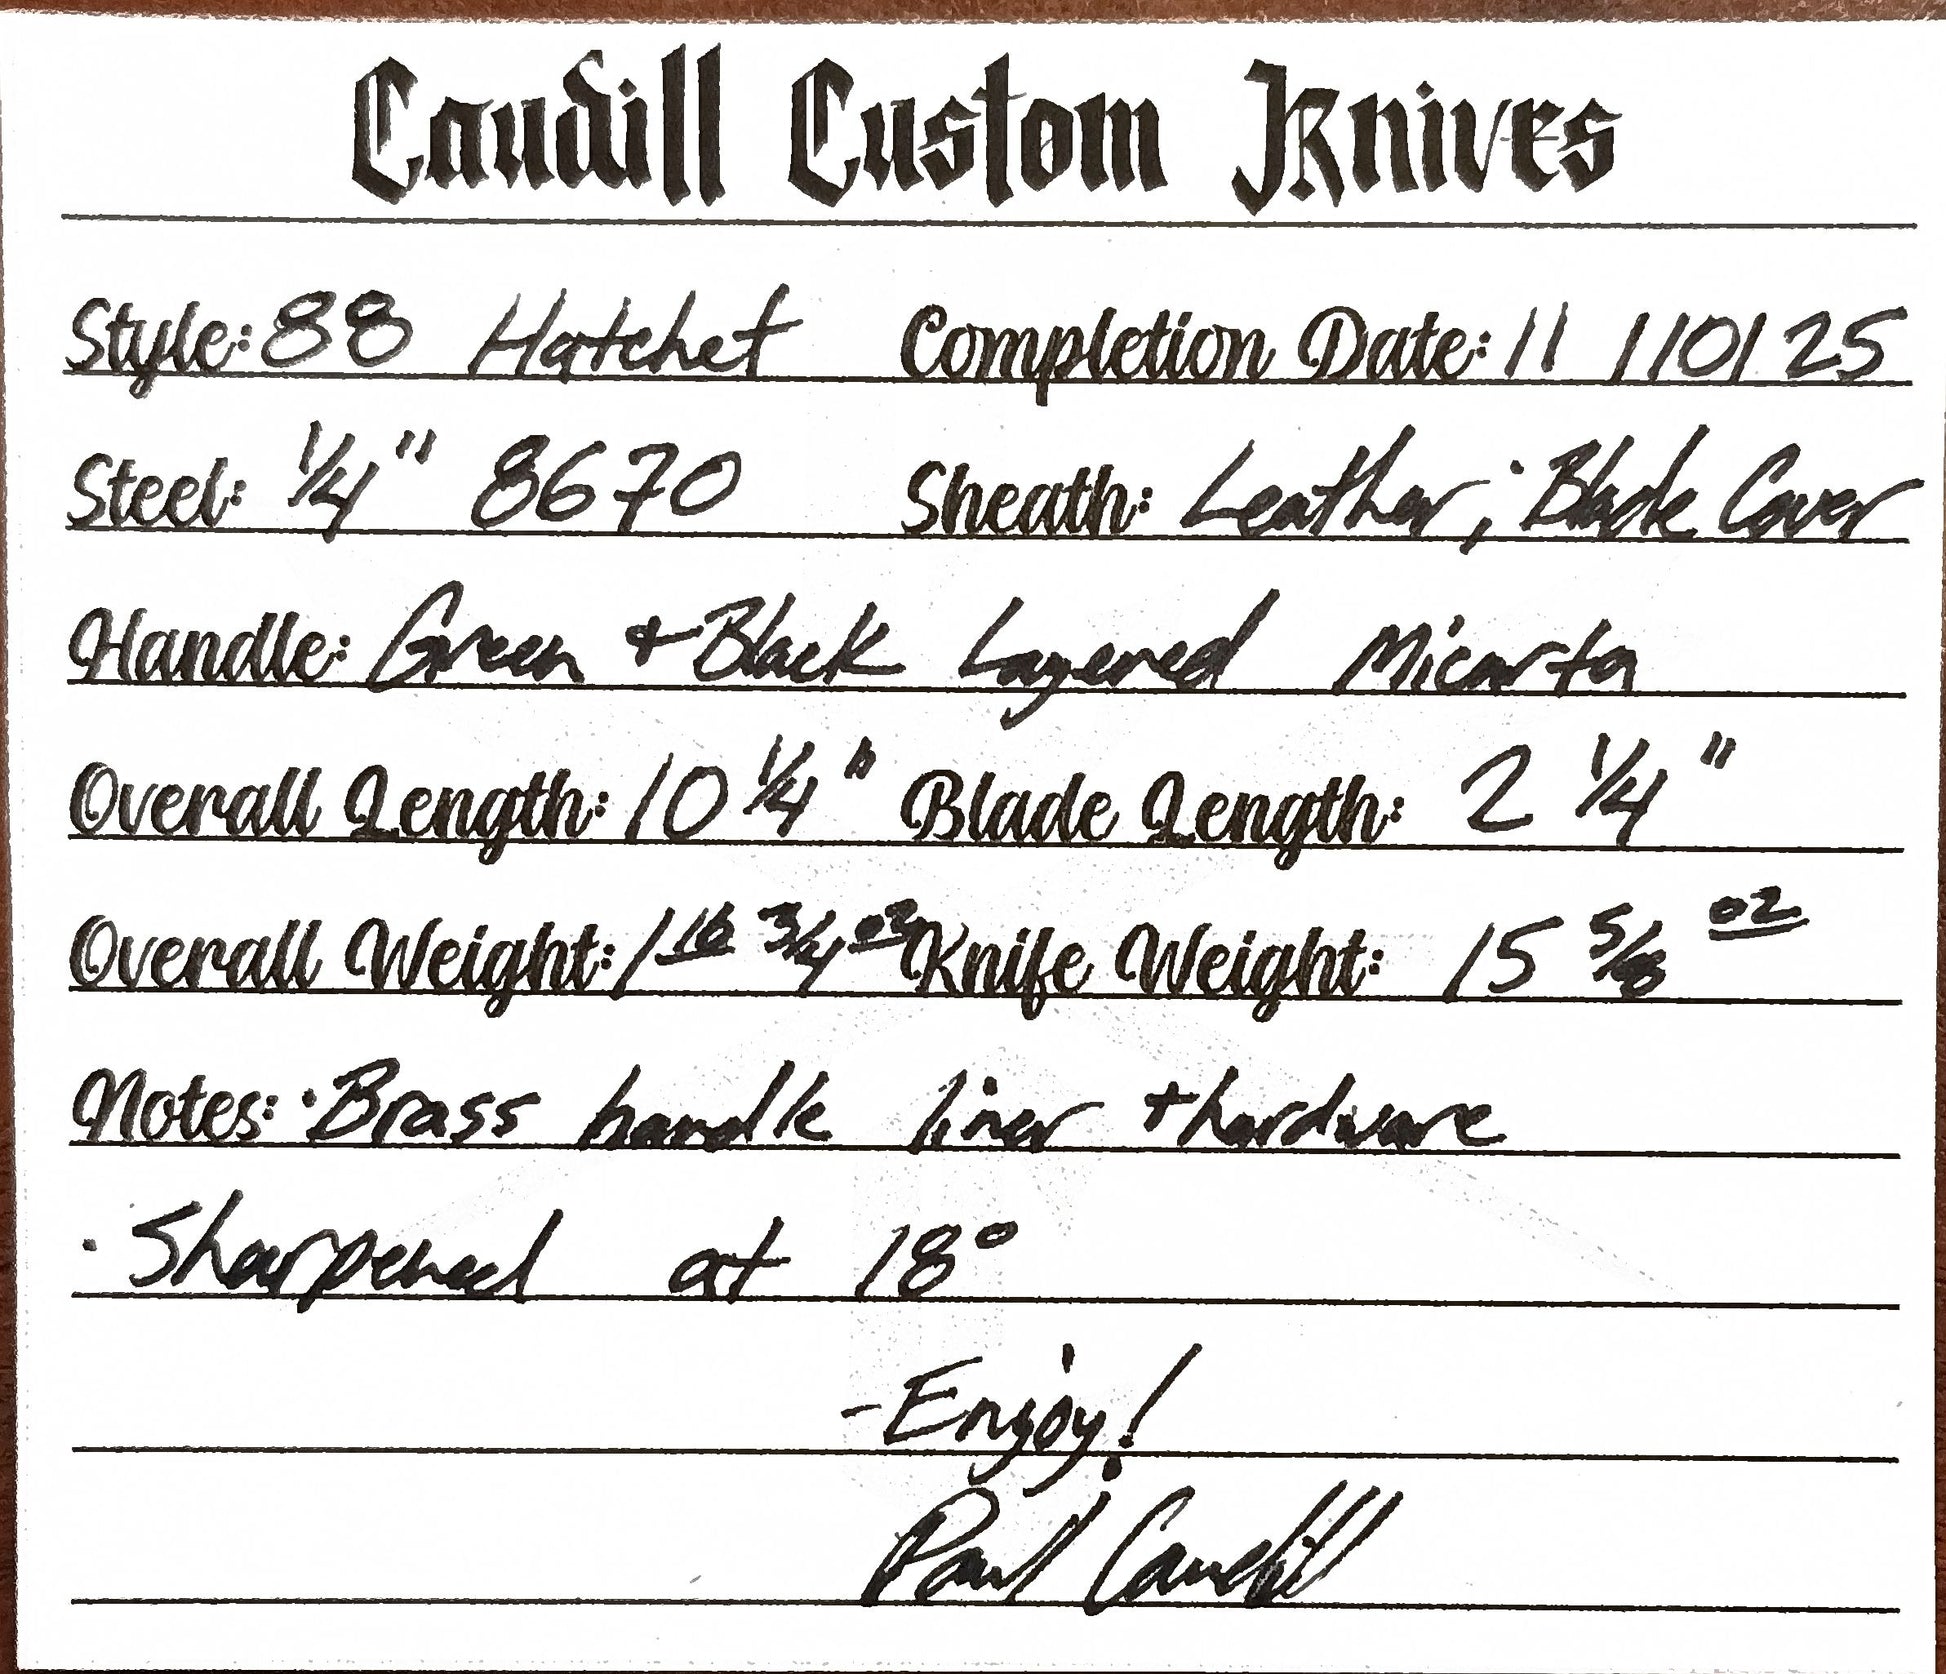 Caudill Custom Knives
Style: 88 Hatchet Completion Date: 11/10/25
Steel: 1/4" 8670 Sheath: Leather; Blade Cover
Handle: Green + Black Layered Micarta
Overall Length: 10 1/4" Blade Length: 2 1/4"
Overall Weight: 1 lb 3/4 oz Knife Weight: 15 5/8 oz
Notes: · Brass handle liner + hardware
· Sharpened at 18°
- Enjoy!
Paul Caudill